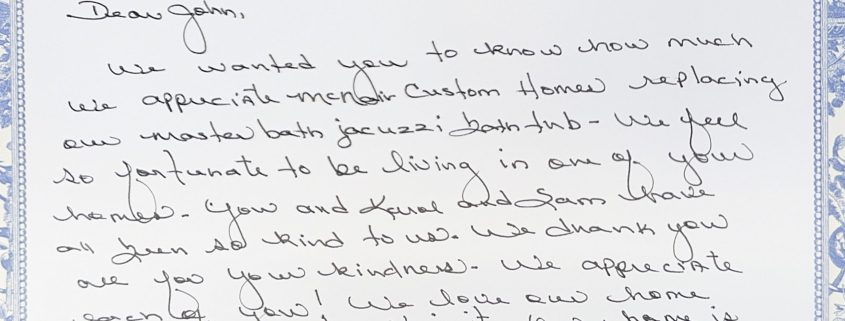 Dear John,
We wanted you to know how much
we appreciate McNair Custom Homes replacing
our master bath jacuzzi bath tub - We feel
so fortunate to be living in one of your
homes. You and and Sam have
all been so kind to us. We thank you
all for your kindness. We appreciate
each of you! We love our home
home is